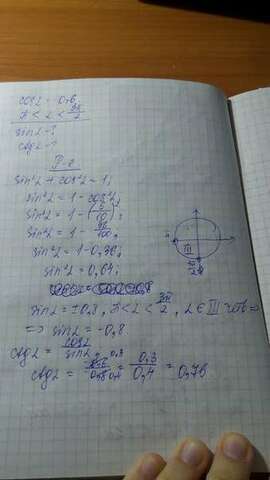 cosα = 0,6
π < α < 3π/2
sinα - ?
ctgα - ?
P-e
sin²α + cos²α = 1;
sin²α = 1 - cos²α;
sin²α = 1 - (6/10)²;
sin²α = 1 - 36/100;
sin²α = 1 - 0,36;
sin²α = 0,64;
sinα = ±0,8, π < α < 3π/2, α ∈ III чов =>
=> sinα = -0,8
ctgα = cosα/sinα
ctgα = = 0,3/0,4 = 0,75
III
π
3π/2